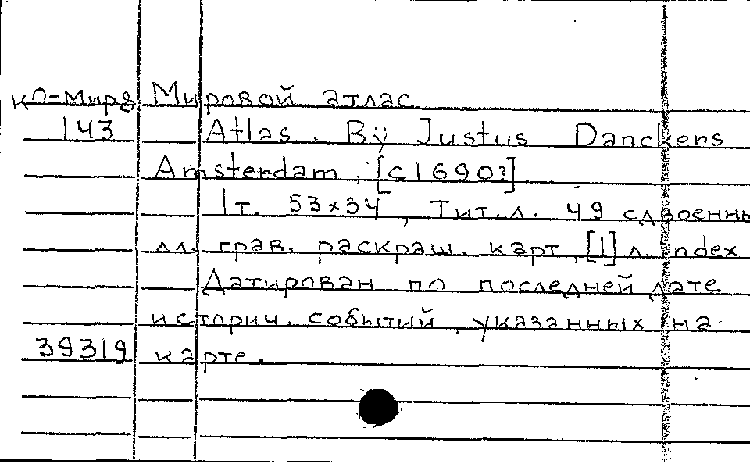 КО-Мира Мировой атлас
143 Atlas. By Justus Danckers
Amsterdam, [c1690?]
1т. 53x34, Тит. л. 49 сдвоенны
лл. грав. раскраш. карт, [1] л. index
Датирован по последней дате
историч. событий, указанных на
39319 карте.